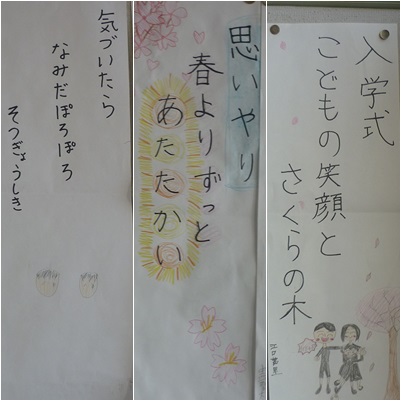 気づいたら
なみだぽろぽろ
そつぎょうしき
思いやり
春よりずっと
あたたかい
入学式
こどもの笑顔と
さくらの木